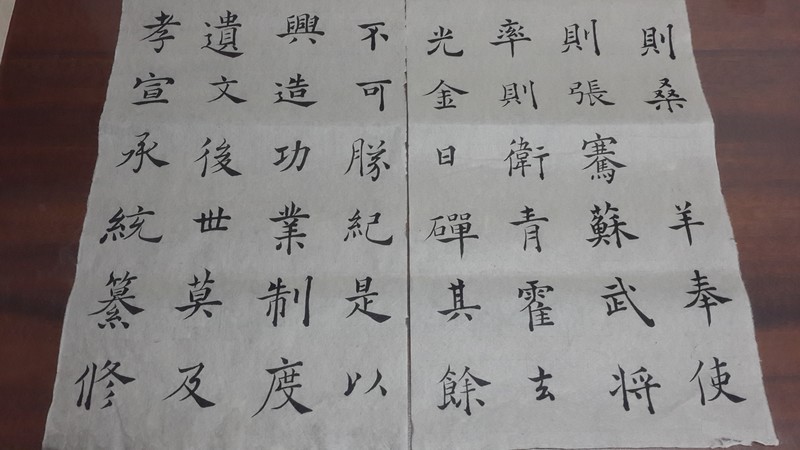 則桑羊奉使
則張騫蘇武将
率則衛青霍去
光金日磾其餘
不可勝紀是以
興造功業制度
遺文後世莫及
孝宣承統纂修